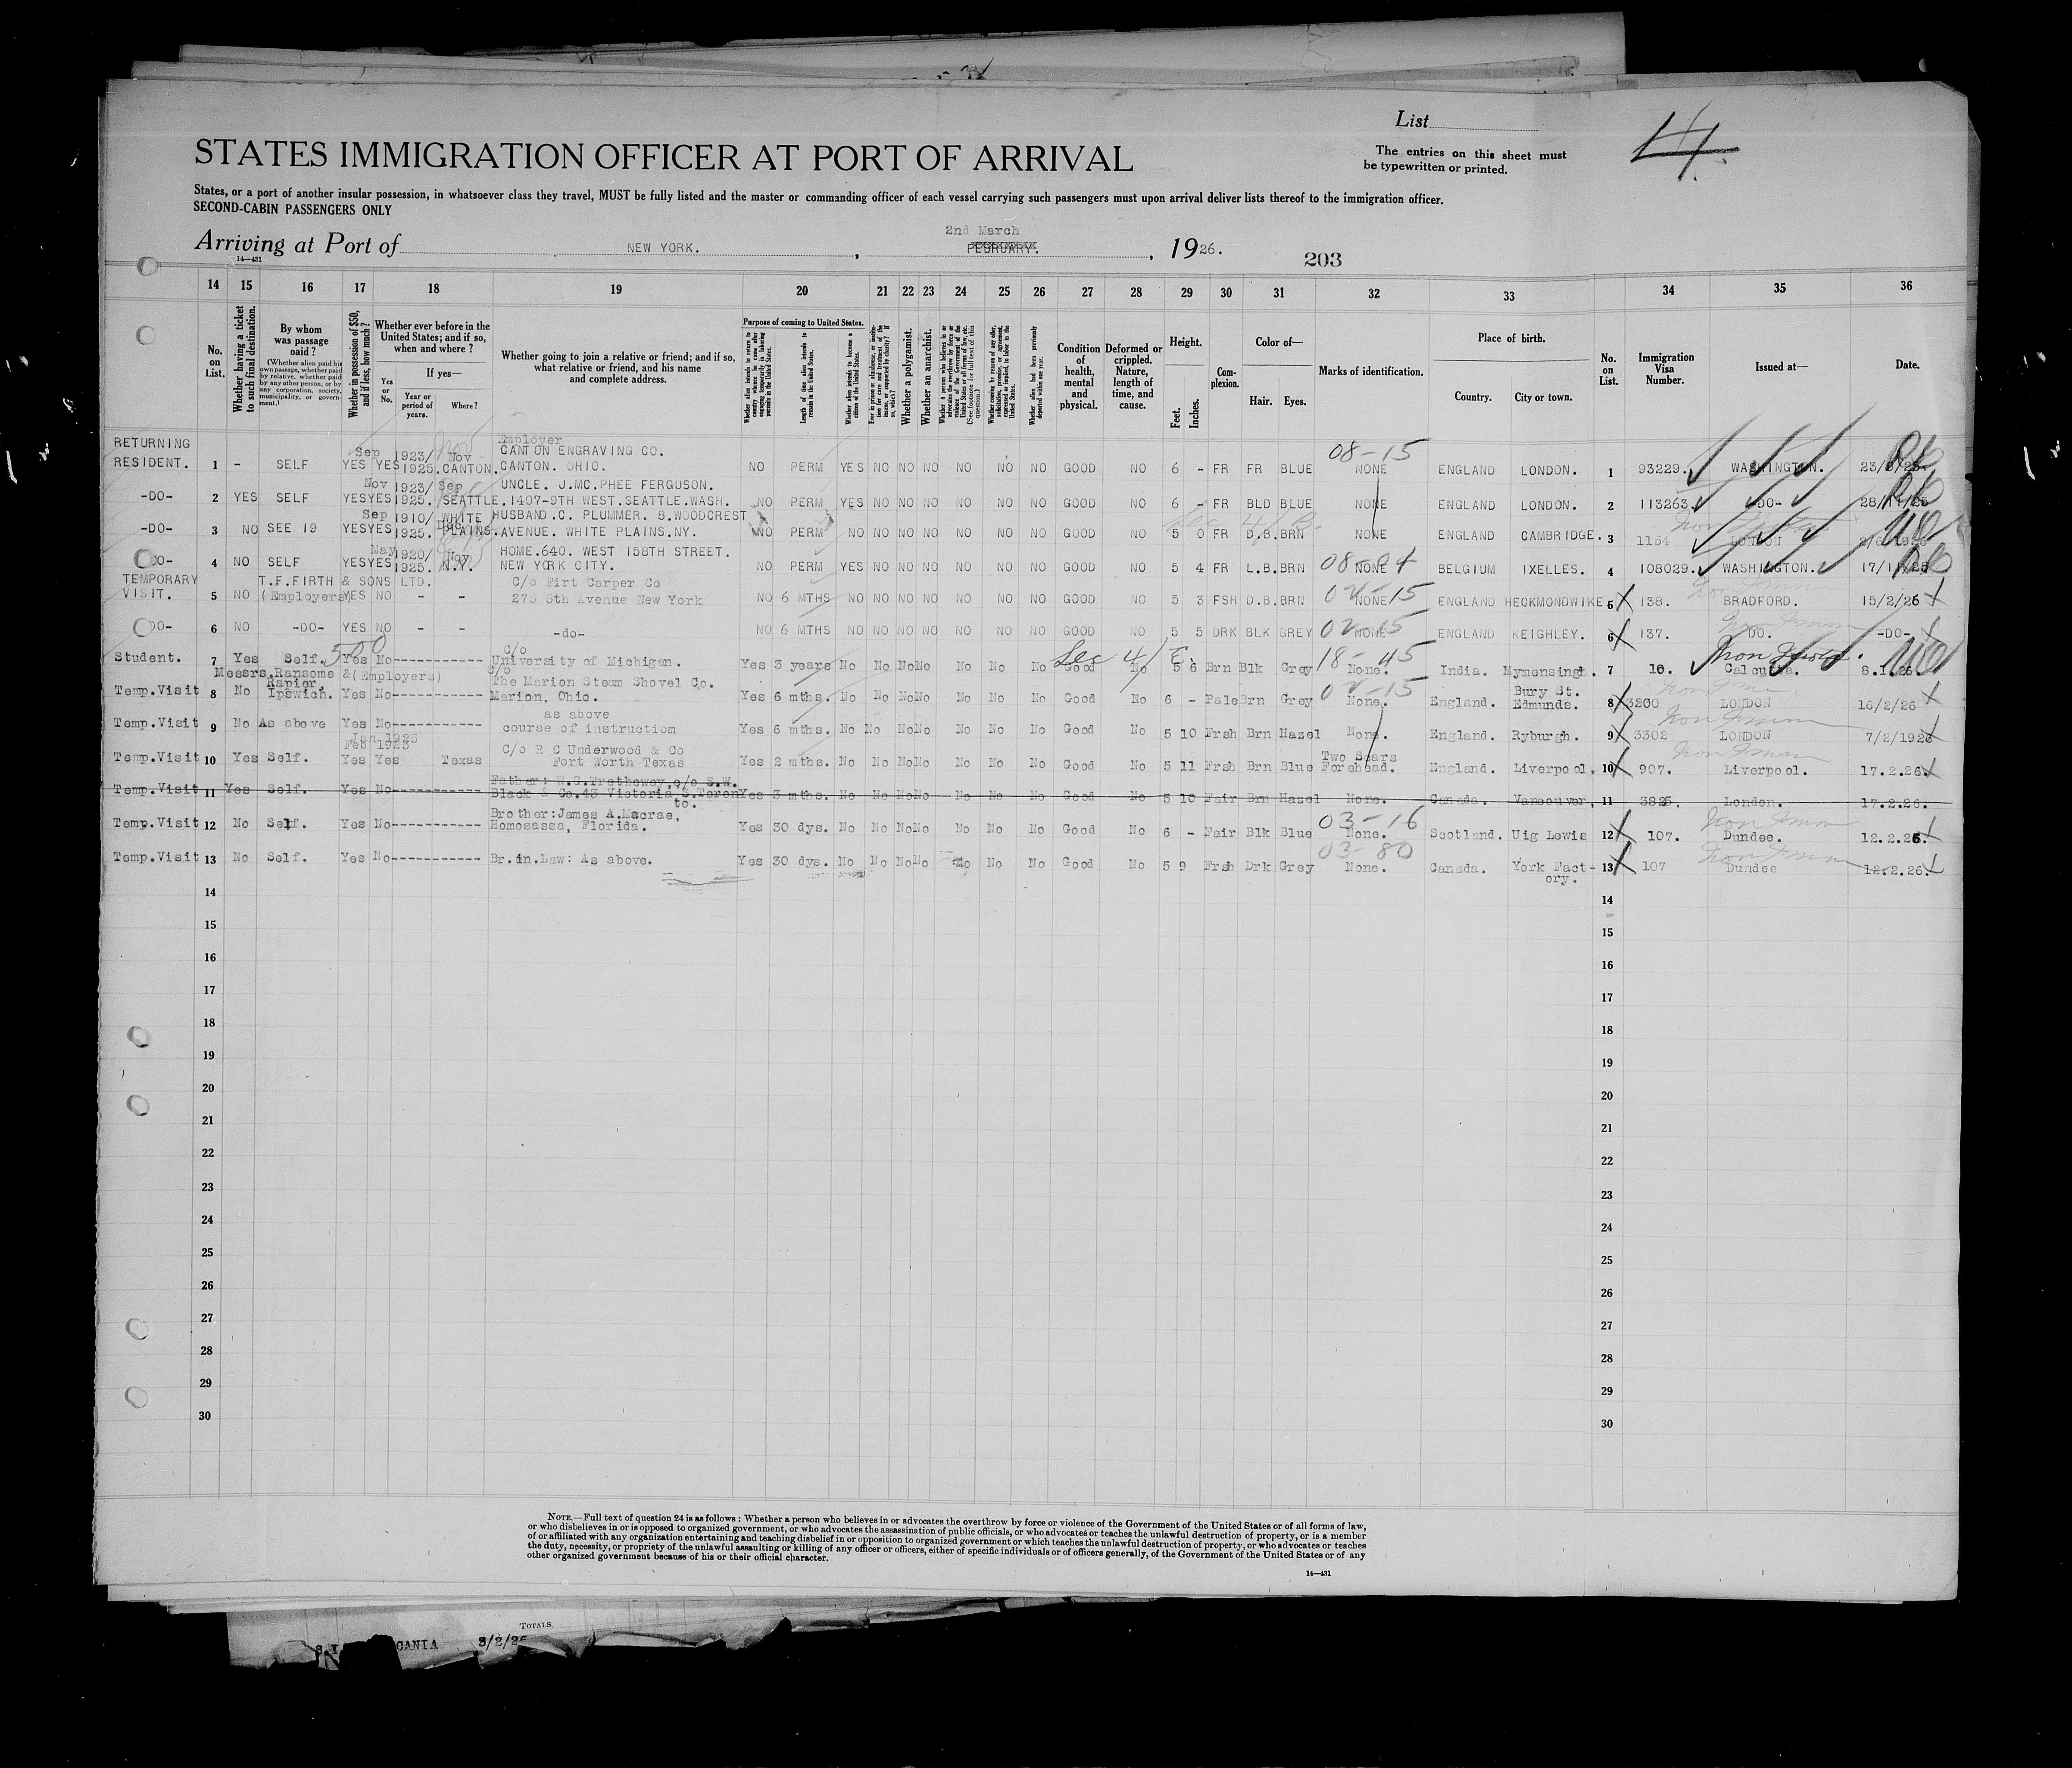 List
4
STATES IMMIGRATION OFFICER AT PORT OF ARRIVAL
The entries on this sheet must
be typewritten or printed.
States, or a port of another insular possession, in whatsoever class they travel, MUST be fully listed and the master or commanding officer of each vessel carrying such passengers must upon arrival deliver lists thereof to the immigration officer.
SECOND-CABIN PASSENGERS ONLY
2nd March
Arriving at Port of NEW YORK. , FEBRUARY. , 1926.
14—431
203
14 15 16 17 18 19 20 21 22 23 24 25 26 27 28 29 30 31 32 33 34 35 36
No. on List.
Whether having a ticket to such final destination.
By whom was passage paid?
(Whether alien paid his own passage, whether paid by relative, whether paid by any other person, or by any corporation, society, municipality, or government.)
Whether in possession of $50, and if less, how much?
Whether ever before in the United States; and if so, when and where?
Yes or No.
If yes—
Year or period of years.
Where?
Whether going to join a relative or friend; and if so, what relative or friend, and his name and complete address.
Purpose of coming to United States.
Length of time alien intends to remain in the United States.
Whether alien intends to become a citizen of the United States.
Whether a polygamist.
Whether an anarchist.
Condition of health, mental and physical.
Deformed or crippled. Nature, length of time, and cause.
Height.
Feet. Inches.
Complexion.
Color of—
Hair. Eyes.
Marks of identification.
Place of birth.
Country. City or town.
No. on List.
Immigration Visa Number.
Issued at—
Date.
RETURNING Sep Nov Employer CANTON ENGRAVING CO. 08-15
RESIDENT. 1 - SELF YES YES 1923/1925. CANTON. CANTON. OHIO. NO PERM YES NO NO NO NO NO NO GOOD NO 6 - FR FR BLUE NONE ENGLAND LONDON. 1 93229. WASHINGTON.
Nov 1923/ Sep UNCLE. J.MC.PHEE FERGUSON.
-DO- 2 YES SELF YES YES 1925. SEATTLE. 1407-9TH WEST.SEATTLE.WASH. NO PERM YES NO NO NO NO NO NO GOOD NO 6 - FR BLD BLUE NONE ENGLAND LONDON. 2 113263. -DO-
Sep 1910/ WHITE HUSBAND.C. PLUMMER. 8.WOODCREST
-DO- 3 NO SEE 19 YES YES 1925. PLAINS. AVENUE. WHITE PLAINS.NY. NO PERM NO NO NO NO NO NO NO GOOD NO 5 0 FR D.B. BRN NONE ENGLAND CAMBRIDGE. 3 1154 LONDON
May 1920/ Nov HOME.640. WEST 158TH STREET.
-DO- 4 NO SELF YES YES 1925. N.Y. NEW YORK CITY. NO PERM YES NO NO NO NO NO NO GOOD NO 5 4 FR L.B. BRN 08-04 NONE BELGIUM IXELLES. 4 108029. WASHINGTON.
TEMPORARY T.F.FIRTH & SONS LTD. C/o Firt Carper Co
VISIT. 5 NO (Employers) YES NO - - 275 5th Avenue New York NO 6 MTHS NO NO NO NO NO NO NO GOOD NO 5 3 FSH D.B. BRN 02-15 NONE ENGLAND HECKMONDWIKE 5 138. BRADFORD. 15/2/26
-DO- 6 NO -DO- YES NO - - -do- NO 6 MTHS NO NO NO NO NO NO NO GOOD NO 5 5 DRK BLK GREY 02-15 NONE ENGLAND KEIGHLEY. 6 137. DO. -DO-
500 C/o Sec 4/E. 18-45
Student. 7 Yes Self. Yes No University of Michigan. Yes 3 years No No No No No No No Good No 5 6 Brn Blk Grey None. India. Mymensingh. 7 10. Calcutta. 8.1.26.
Messrs.Ransome & (Employers) C/o The Marion Steam Shovel Co. 02-15 Bury St.
Rapier.
Temp.Visit 8 No Ipswich. Yes No Marion, Ohio. Yes 6 mths. No No No No No No No Good No 6 - Pale Brn Grey None. England. Edmunds. 8 3200 LONDON 16/2/26
as above
Temp.Visit 9 No As above Yes No course of instruction Yes 6 mths. No No No No No No No Good No 5 10 Frsh Brn Hazel None. England. Ryburgh. 9 3302 LONDON 7/2/1926
Jan 1925
Feb 1925 C/o R C Underwood & Co Two Scars
Temp.Visit 10 Yes Self. Yes Yes Texas Fort Worth Texas Yes 2 mths. No No No No No No No Good No 5 11 Frsh Brn Blue Forehead. England. Liverpool. 10 907. Liverpool. 17.2.26.
Father: W.G.Trethewey,c/o S.W.
Temp.Visit 11 Yes Self. Yes No Black & Co.43 Victoria S.Toronto. Yes 3 mths. No No No No No No No Good No 5 10 Fair Brn Hazel None. Canada. Vancouver, 11 3825. London. 17.2.26.
Brother:James A.Macrae, 03-16
Temp.Visit 12 No Self. Yes No Homosassa, Florida. Yes 30 dys. No No No No No No No Good No 6 - Fair Blk Blue None. Scotland. Uig Lewis 12 107. Dundee. 12.2.26.
03-80
Temp.Visit 13 No Self. Yes No Br.in.Law: As above. Yes 30 dys. No No No No No No No Good No 5 9 Frsh Drk Grey None. Canada. York Factory. 13 107 Dundee 12.2.26.
14 14
15 15
16 16
17 17
18 18
19 19
20 20
21 21
22 22
23 23
24 24
25 25
26 26
27 27
28 28
29 29
30 30
NOTE.—Full text of question 24 is as follows: Whether a person who believes in or advocates the overthrow by force or violence of the Government of the United States or of all forms of law,
or who disbelieves in or is opposed to organized government, or who advocates the assassination of public officials, or who advocates or teaches the unlawful destruction of property, or is a member
of or affiliated with any organization entertaining and teaching disbelief in or opposition to organized government or which teaches the unlawful destruction of property, or who advocates or teaches
the duty, necessity, or propriety of the unlawful assaulting or killing of any officer or officers, either of specific individuals or of officers generally, of the Government of the United States or of any
other organized government because of his or their official character.
14—431
TOTALS.
CANIA 3/2/26